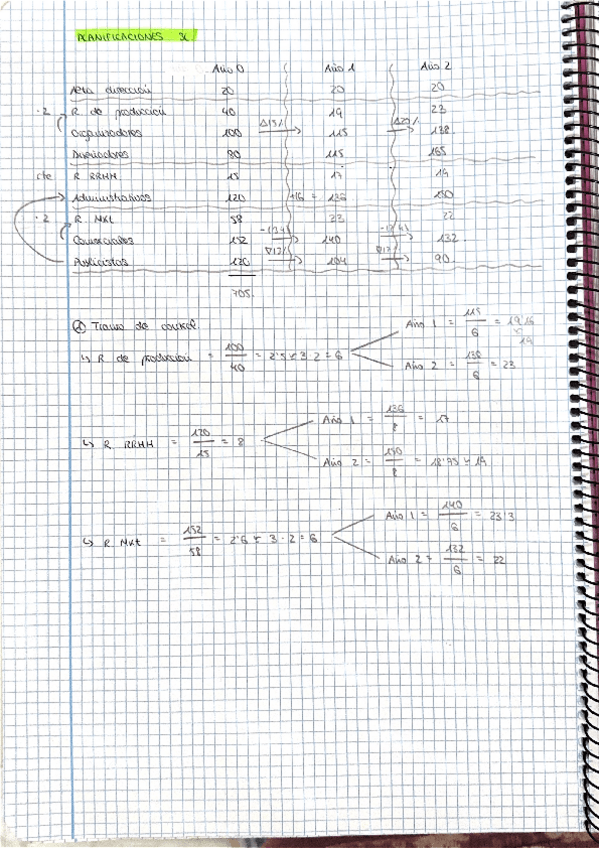 PLANIFICACIONES
Año 0 Año 1 Año 2
Alta dirección 20 20 20
·2 R de producción 40 19 23
Organizadores 100 Δ15% 115 Δ20% 138
Diseñadores 80 115 165
cte R RRHH 15 17 19
Administrativos 120 +16 = 136 150
·2 R Mkt 58 23 22
Comerciales 152 140 132
Publicistas 120 104 90
705
Tramo de control
↳ R de producción = 100/40 = 2'5 ≈ 3·2 = 6
Año 1 = 115/6 = 19'16
19
Año 2 = 138/6 = 23
↳ R RRHH = 120/15 = 8
Año 1 = 136/8 = 17
Año 2 = 150/8 = 18'75 ≈ 19
↳ R Mkt = 152/58 = 2'6 ≈ 3·2 = 6
Año 1 = 140/6 = 23'3
Año 2 = 132/6 = 22